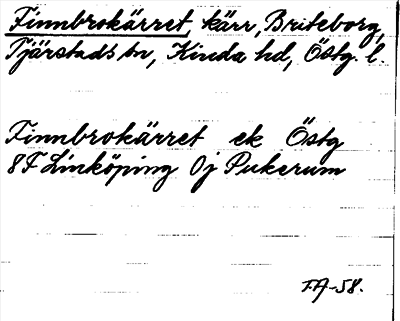 Finnbrokärret, kärr, Briteborg,
Tjärstads sn, Kinda hd, Östg. l.
Finnbrokärret ek Östg
8F Linköping 0j Pukerum
T.A-58.